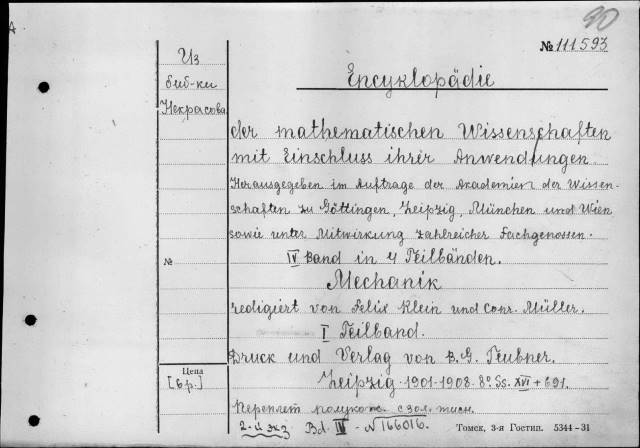 20
№ 111593
Из
биб-ки
Некрасова
Encyklopädie
der mathematischen Wissenschaften
mit Einschluss ihrer Anwendungen.
Herausgegeben im Auftrage der Akademien der Wissen-
schaften zu Göttingen, Leipzig, München und Wien
sowie unter Mitwirkung zahlreicher Fachgenossen.
№
IV Band in 4 Teilbänden.
Mechanik
redigiert von Felix Klein und Conr. Müller.
I Teilband.
Druck und Verlag von B.G. Teubner.
Цена
[6р.]
Leipzig 1901-1908. 8º. Ss. XVI + 691.
Переплет полукож. с зол. тисн.
2-й экз Bd. IV - N 166016.
Томск, 3-я Гостип. 5344-31